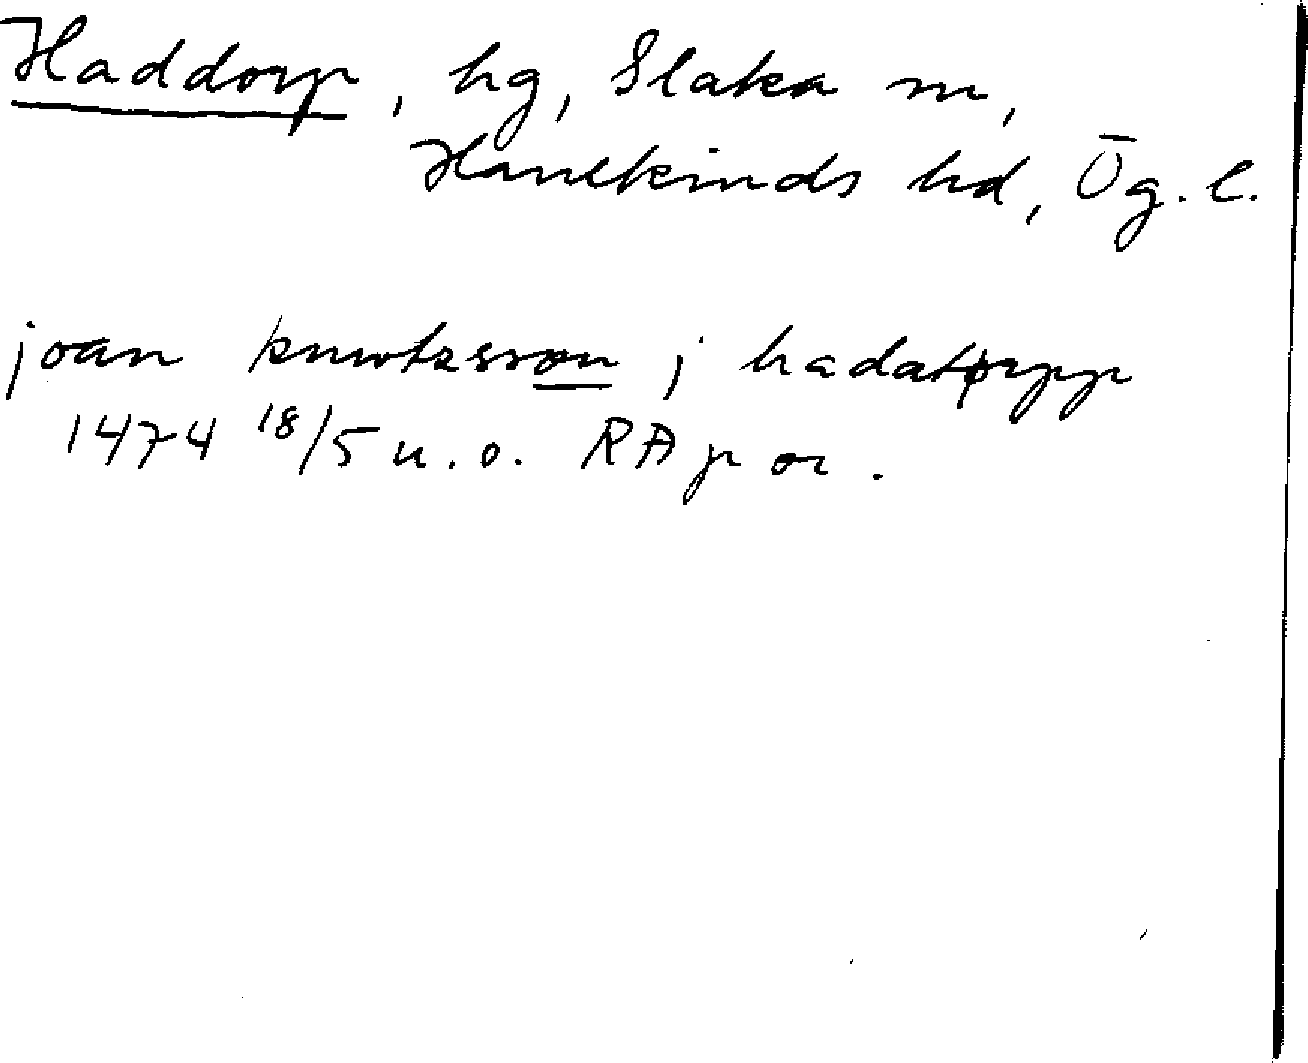 Haddorp, hg, Slaka sn,
Hanekinds hd, Ög. l.
joan knwtzsson j hadatørpp
1474 18/5 u. o. RA p or.